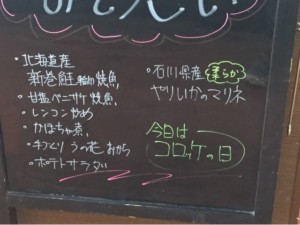 ・北海道産
新巻鮭 焼魚
・甘塩ベニサケ焼魚
・レンコン炒め
・かぼちゃ煮
・手づくり うの花 おから
・ポテトサラダ
・石川県産 柔らか
やりいかのマリネ
今日は
コロッケの日